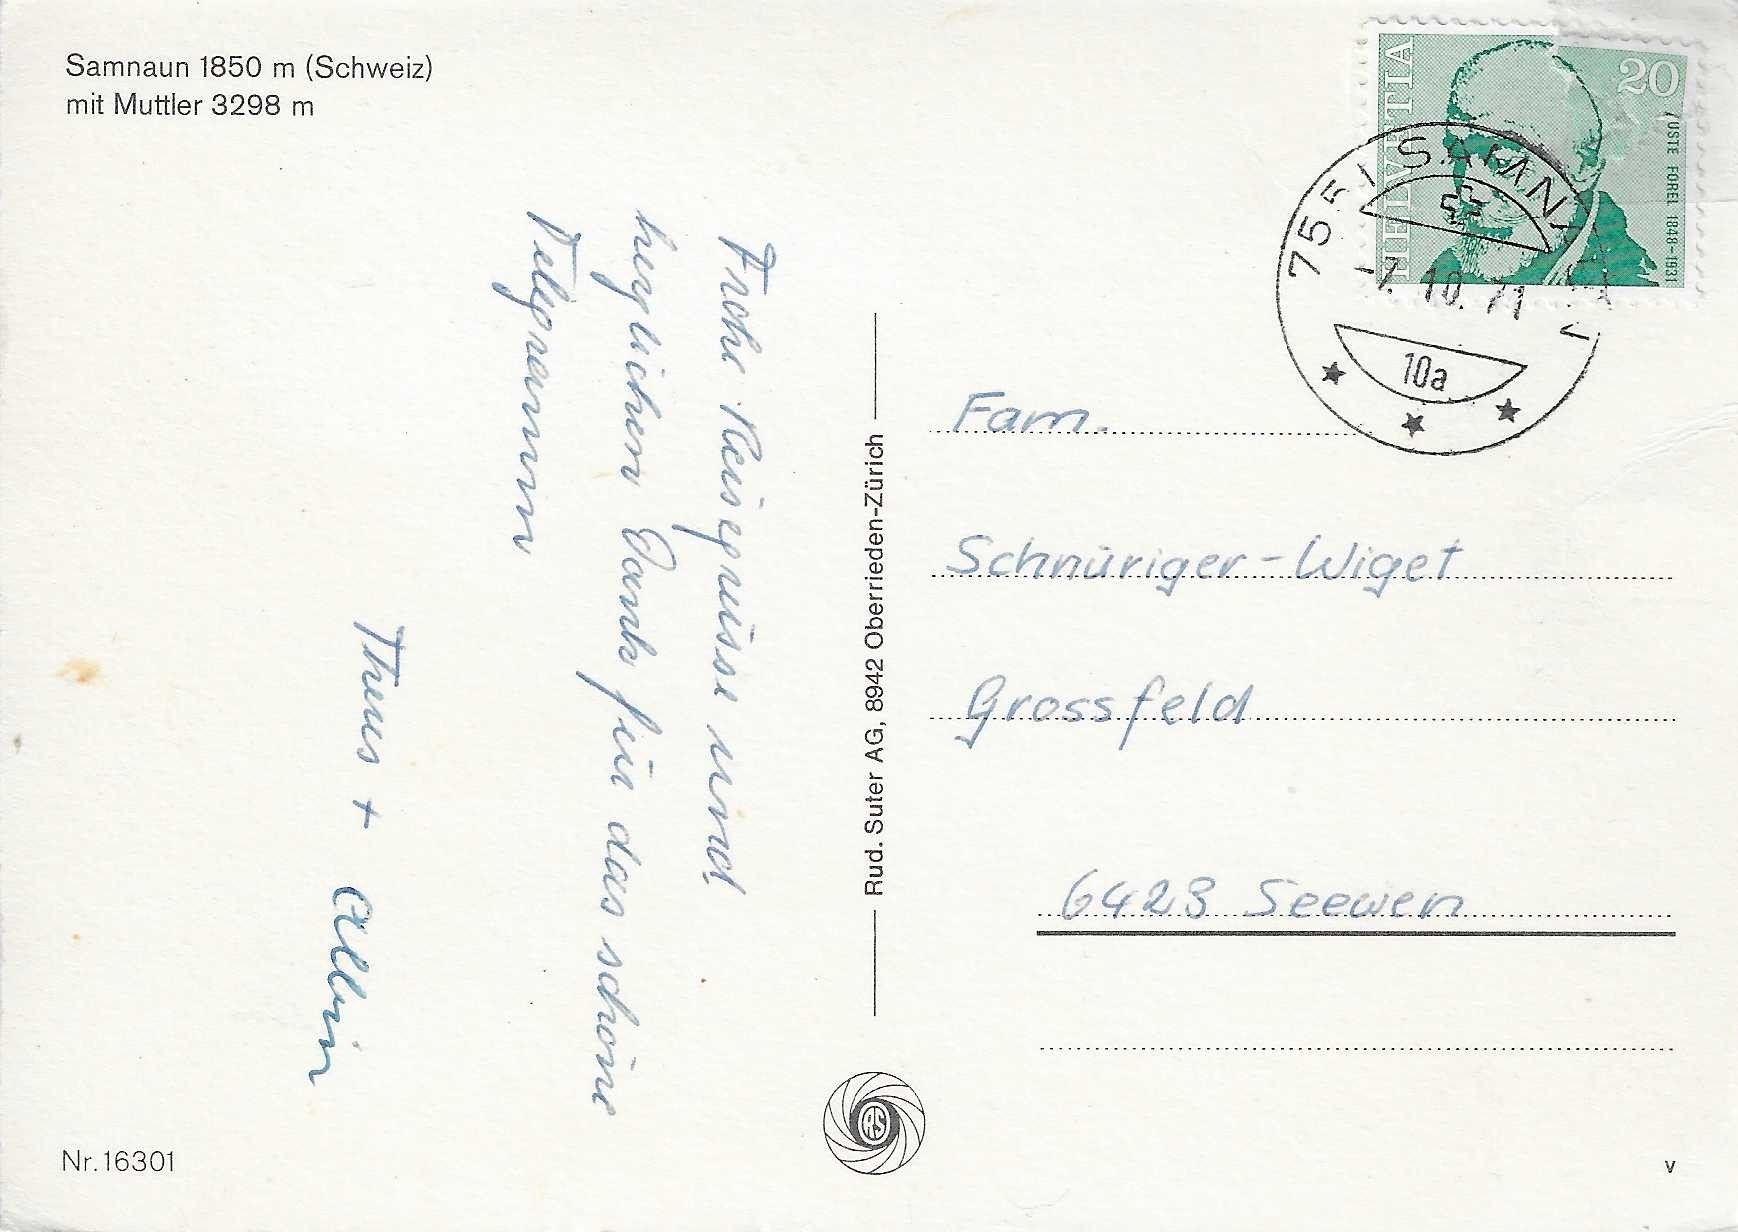 Samnaun 1850 m (Schweiz)
mit Muttler 3298 m
HELVETIA
20
USTE FOREL 1848-1931
7551 SAMNAUN
-7.10.71
10a
Frohe Reisegrüsse und
herzlichen Dank für das schöne
Telegramm
Theus + Allin
Rud. Suter AG, 8942 Oberrieden-Zürich
Fam.
Schnüriger-Wiget
Grossfeld
6423 Seewen
RS
Nr. 16301
v